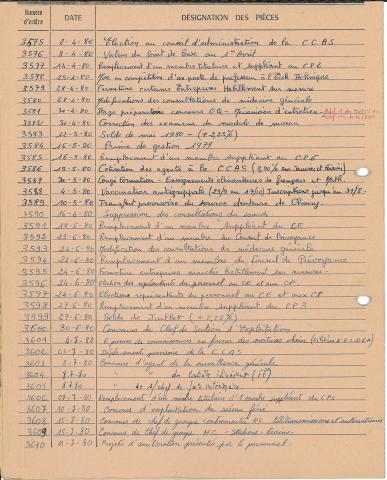 Numéro d'ordre DATE DÉSIGNATION DES PIÈCES
3575 2-4-80 Election au conseil d'administration de la C.C.A.S
3576 8-4-80 Valeur du Point de Base au 1er Avril
3577 14-4-80 Remplacement d'un membre titulaire et suppléant au CPE
3578 25-4-80 Mise en compétition d'un poste de professeur à l'Ecole Technique
3579 28-4-80 Fermeture certaines Entreprises Habillement sur mesure
3580 28-4-80 Modifications des consultations de médecine générale
3581 30-4-80 Stage préparatoire concours OQ - Mécanicien d'entretien
3582 30-4-80 Correction des examens du module de niveau
3583 12-5-80 Solde de mai 1980 - (+2,25%)
3584 16-5-80 Prime de gestion 1979
3585 16-5-80 Remplacement d'un membre suppléant au CPE
3586 19-5-80 Cotisation des agents à la CCAS
3587 30-5-80 Congé formation - Enseignements élémentaires de français et Math.
3588 4-5-80 Vaccination antigrippale (23/9 au 17/10) Inscriptions jusqu'au 31/8
3589 10-5-80 Transfert provisoire du service dentaire de Choisy
3590 16-6-80 Suppression des consultations du samedi
3591 18-6-80 Remplacement d'un membre suppléant du CE
3592 23-6-80 Remplacement d'un membre au Conseil de Prévoyance
3593 24-6-80 Modification des consultations de médecine générale
3594 24-6-80 Remplacement d'un membre du Conseil de Prévoyance
3595 24-6-80 Fermeture entreprises marchés Habillement sur mesures
3596 24-6-80 Election des représentants du personnel au CE et aux CP
3597 27-6-80 Elections représentants du personnel au CE et aux CP
3598 27-6-80 Remplacement d'un membre suppléant du CP3
3599 27-6-80 Solde de Juillet
3600 30-6-80 Concours de Chef de Section d'Exploitation
3601 4-7-80 Epreuve de connaissances en forme des motrices choix
3602 03-7-80 Déplacement provisoire de la C.C.A.S
3603 8-7-80 Concours d'agent de la surveillance générale
3604 8-7-80 " "
3605 8-7-80 " " de S/chef de
3606 07-7-80 Remplacement d'un membre titulaire d'1 membre suppléant du CPS
3607 10-7-80 Concours d'exploitation du réseau ferré
3608 15-7-80 Concours de chef de groupe contremaître HC télétransmissions et automatismes
3609 15-7-80 Concours de Chef de groupe HC - Stations - trains
3610 11-7-80 Projets d'amélioration présentés par le personnel